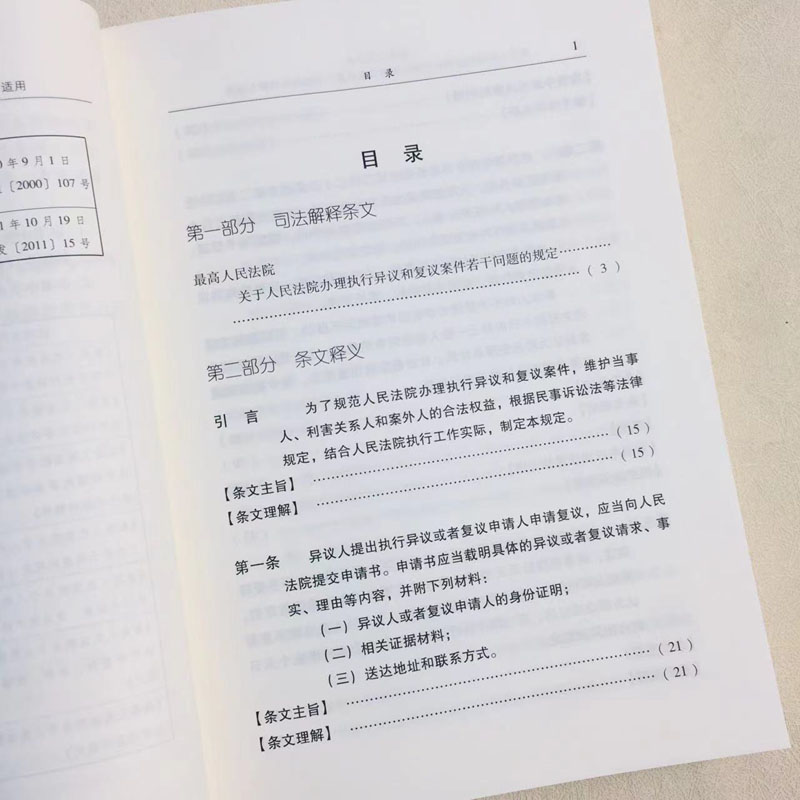 适用
0年9月1日
〔2000〕107号
1年10月19日
发〔2011〕15号
目 录
1
目 录
第一部分 司法解释条文
最高人民法院
关于人民法院办理执行异议和复议案件若干问题的规定…………
……………………………………………………………(3)
第二部分 条文释义
引 言 为了规范人民法院办理执行异议和复议案件，维护当事
人、利害关系人和案外人的合法权益，根据民事诉讼法等法律
规定，结合人民法院执行工作实际，制定本规定。
【条文主旨】……………………………………………………(15)
【条文理解】……………………………………………………(15)
第一条 异议人提出执行异议或者复议申请人申请复议，应当向人民
法院提交申请书。申请书应当载明具体的异议或者复议请求、事
实、理由等内容，并附下列材料：
（一）异议人或者复议申请人的身份证明；
（二）相关证据材料；
（三）送达地址和联系方式。
【条文主旨】……………………………………………………(21)
【条文理解】……………………………………………………(21)